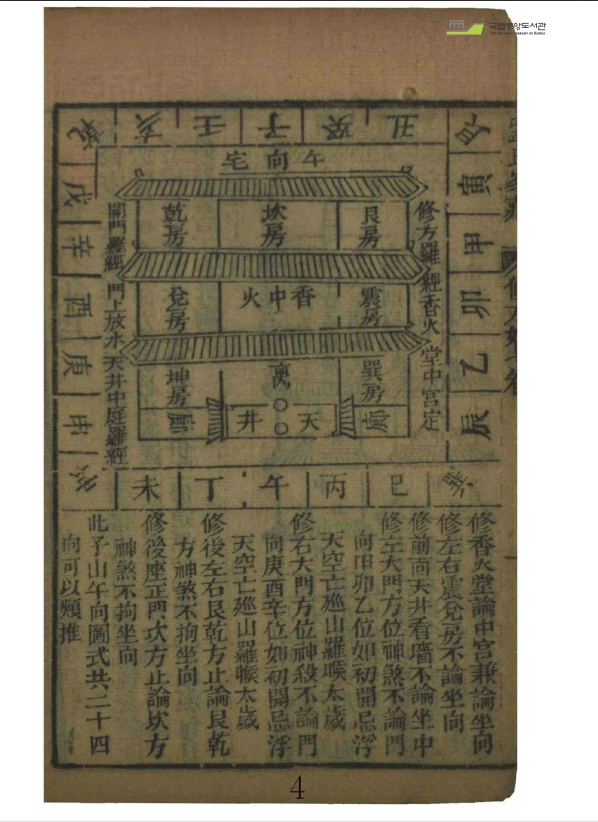 국립중앙도서관
THE NATIONAL LIBRARY OF KOREA
乾 亥 壬 子 癸 丑 艮
寅
甲
卯
乙
辰
巽 巳 丙 午 丁 未 坤
申
庚
酉
辛
戌
午向宅
修方羅經香火堂中宮定
開門羅經門上放水天井中庭羅經
艮房 坎房 乾房
震房 香中火 兌房
巽房 离 坤房
天井
修香火堂論中宮兼論坐向
修左右震兌房不論坐向
修前面天井看墻不論坐中
修左大門方位神煞不論門
向甲卯乙位如初開忌浮
天空亡廵山羅㬋太歲
修右大門方位神殺不論門
向庚酉辛位如初開忌浮
天空亡廵山羅㬋太歲
修後左右艮乾方止論艮乾
方神煞不拘坐向
修後座正門坎方止論坎方
神煞不拘坐向
此子山午向圖式共二十四
向可以類推
4